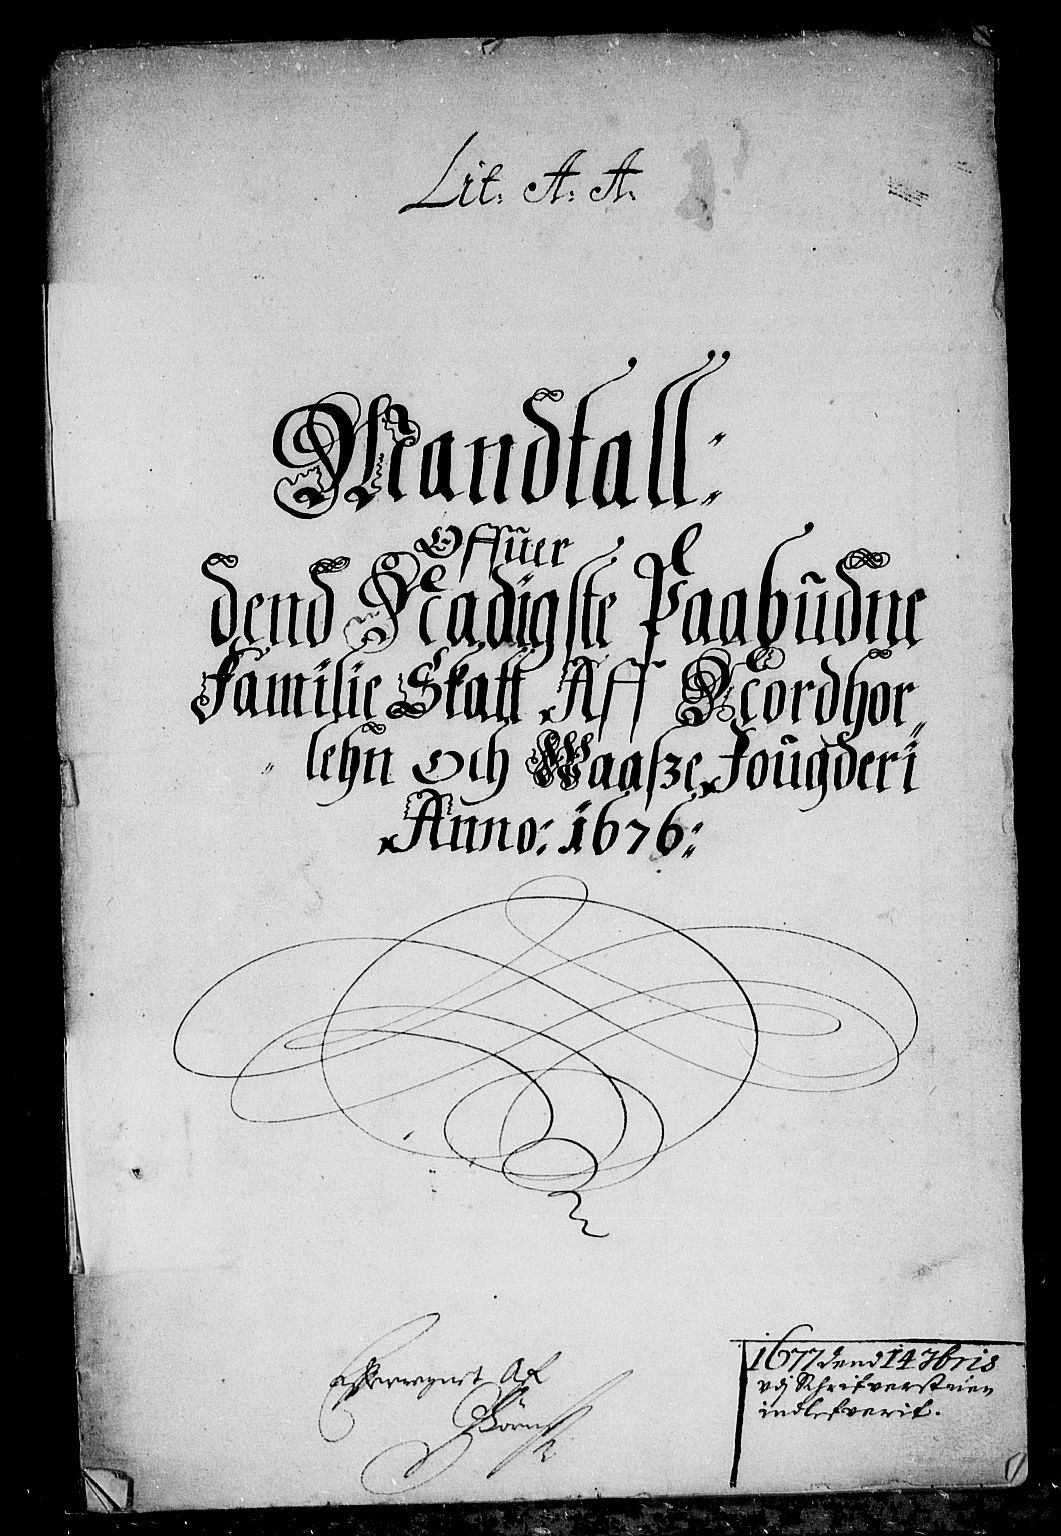 Lit. A: A:
Mandtall:
Offuer
dend Naadigste Paabudne
Familie Skatt Aff Nordhor„
„ lehn och Waasze Fougderi
Anno: 1676:
Af
1677 dend 14 7bris
vdj Schrifverstuen
indlefverit.